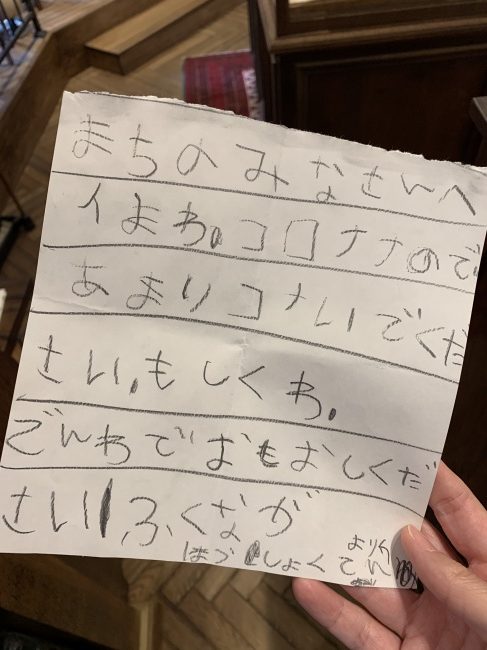 まちのみなさんへ
イまわ。コロナナので
あまりコナいでくだ
さい。もしくわ。
でんわでおもおしくだ
さいふくなが
はづしょくてんより